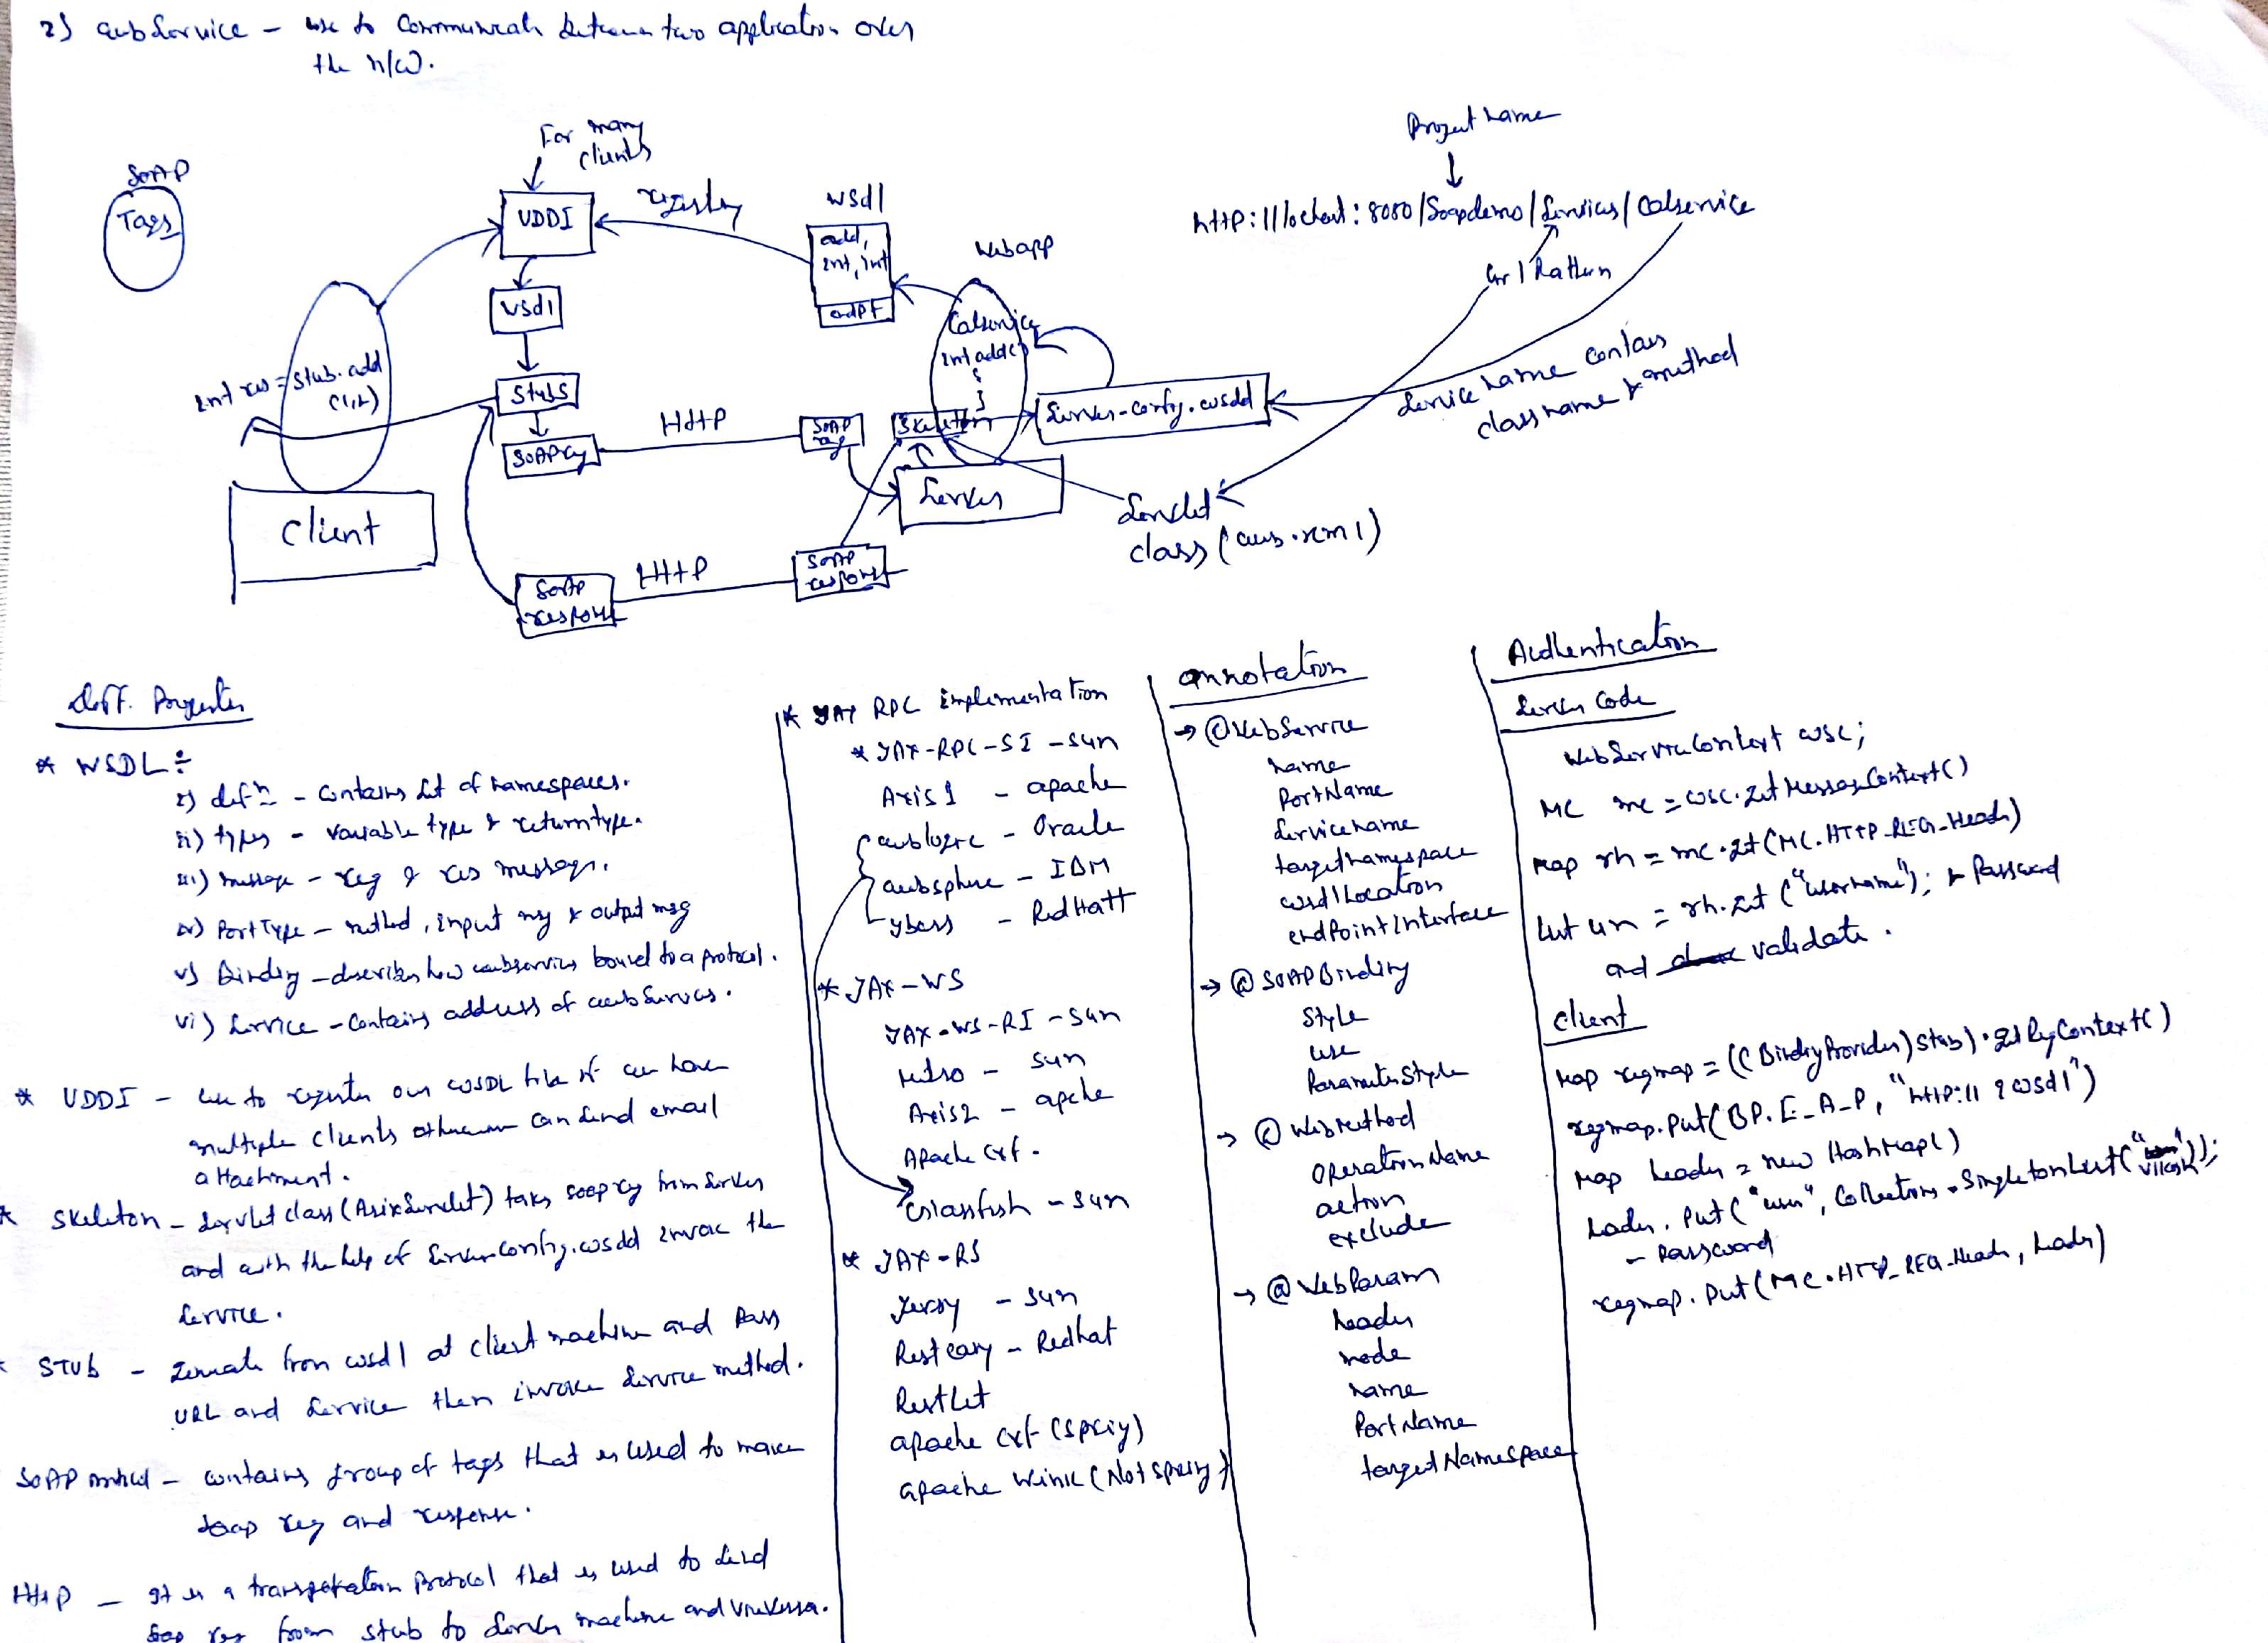 2) webService – use to Communicate between two application over
the n/w.
For many
clients
SOAP
Tags
UDDI
registry
wsdl
add,
int, int
Webapp
Project name
↓
http://lochost:8080/Soapdemo/Services/Calservice
url Pattern
wsdl
Calservice
int add()
{
}
int res = stub.add
(1,2)
Stubs
SOAP req
HttP
SOAP
req
Skeleton
Server-config.wsdd
Service name contains
class name & method
Client
Server
Servlet
class (web.xml)
SOAP
respons
HttP
SOAP
respons
diff. Properties
* WSDL :
i) defn – contains list of namespaces.
ii) types – variable type & returntype.
iii) message – req & res message.
iv) Port Type – method, input msg & output msg
v) Binding – describes how webservices bound to a protocol.
vi) Service – contains address of webServices.
* UDDI – use to register our WSDL file if we have
multiple clients otherwise can send email
attachment.
* Skeleton – servlet class (AxisServlet) takes soap req from server
and with the help of ServerConfig.wsdd invoke the
Service.
* STUb – generate from wsdl at client machine and pass
URL and Service then invoke Service method.
SOAP – contains group of tags that is used to make
soap req and response.
HttP – It is a transpotation Protocol that is used to send
soap req from stub to server machine and viceversa.
* JAX RPC implementation
* JAX-RPC-SI – sun
Axis 1 – apache
weblogic – Oracle
websphere – IBM
jboss – RedHatt
* JAX – WS
JAX-WS-RI – sun
metro – sun
Axis2 – apche
Apache CXf –
Glassfish – sun
* JAX – RS
Jersy – sun
Resteasy – Redhat
RestLet
apache CXf (spring)
apache Wink (Not spring)
annotation
→ @WebService
name
PortName
Servicename
targetnamespace
wsdlLocation
endPointInterface
→ @SOAPBinding
Style
use
ParameterStyle
→ @WebMethod
OperationName
action
exclude
→ @WebParam
header
mode
name
PartName
targetNamespace
Authentication
Server Code
WebServiceContext wsc;
MC mc = wsc.getMessageContext()
Map rh = mc.get(MC.HTTP_REQ_Head)
List un = rh.get("username"); & Password
and validate.
Client
Map reqmap = ((BindingProvider)stub).getReqContext()
reqmap.put(BP.E_A_P, "http:// ?wsdl")
Map header = new HashMap()
header.put("un", Collections.SingletonList(" "));
– Password
reqmap.put(MC.HTTP_REQ_Head, header)